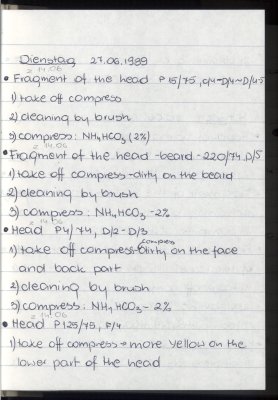 Dienstag 27.06.1989
z 14.06
• Fragment of the head P15/75, c/4-D/4-D/4-5
1) take off compress
2) cleaning by brush
3) compress: NH4HCO3 (2%)
z 14.06
• Fragment of the head-beard-220/74, D/5
1) take off compress-dirty on the beard
2) cleaning by brush
3) compress: NH4HCO3-2%
z 14.06
• Head P4/74, D/2-D/3
compress
1) take off compress-dirty on the face
and back part
2) cleaning by brush
3) compress: NH4HCO3-2%
z 14.06
• Head P125/75, F/4
1) take off compress → more yellow on the
lower part of the head